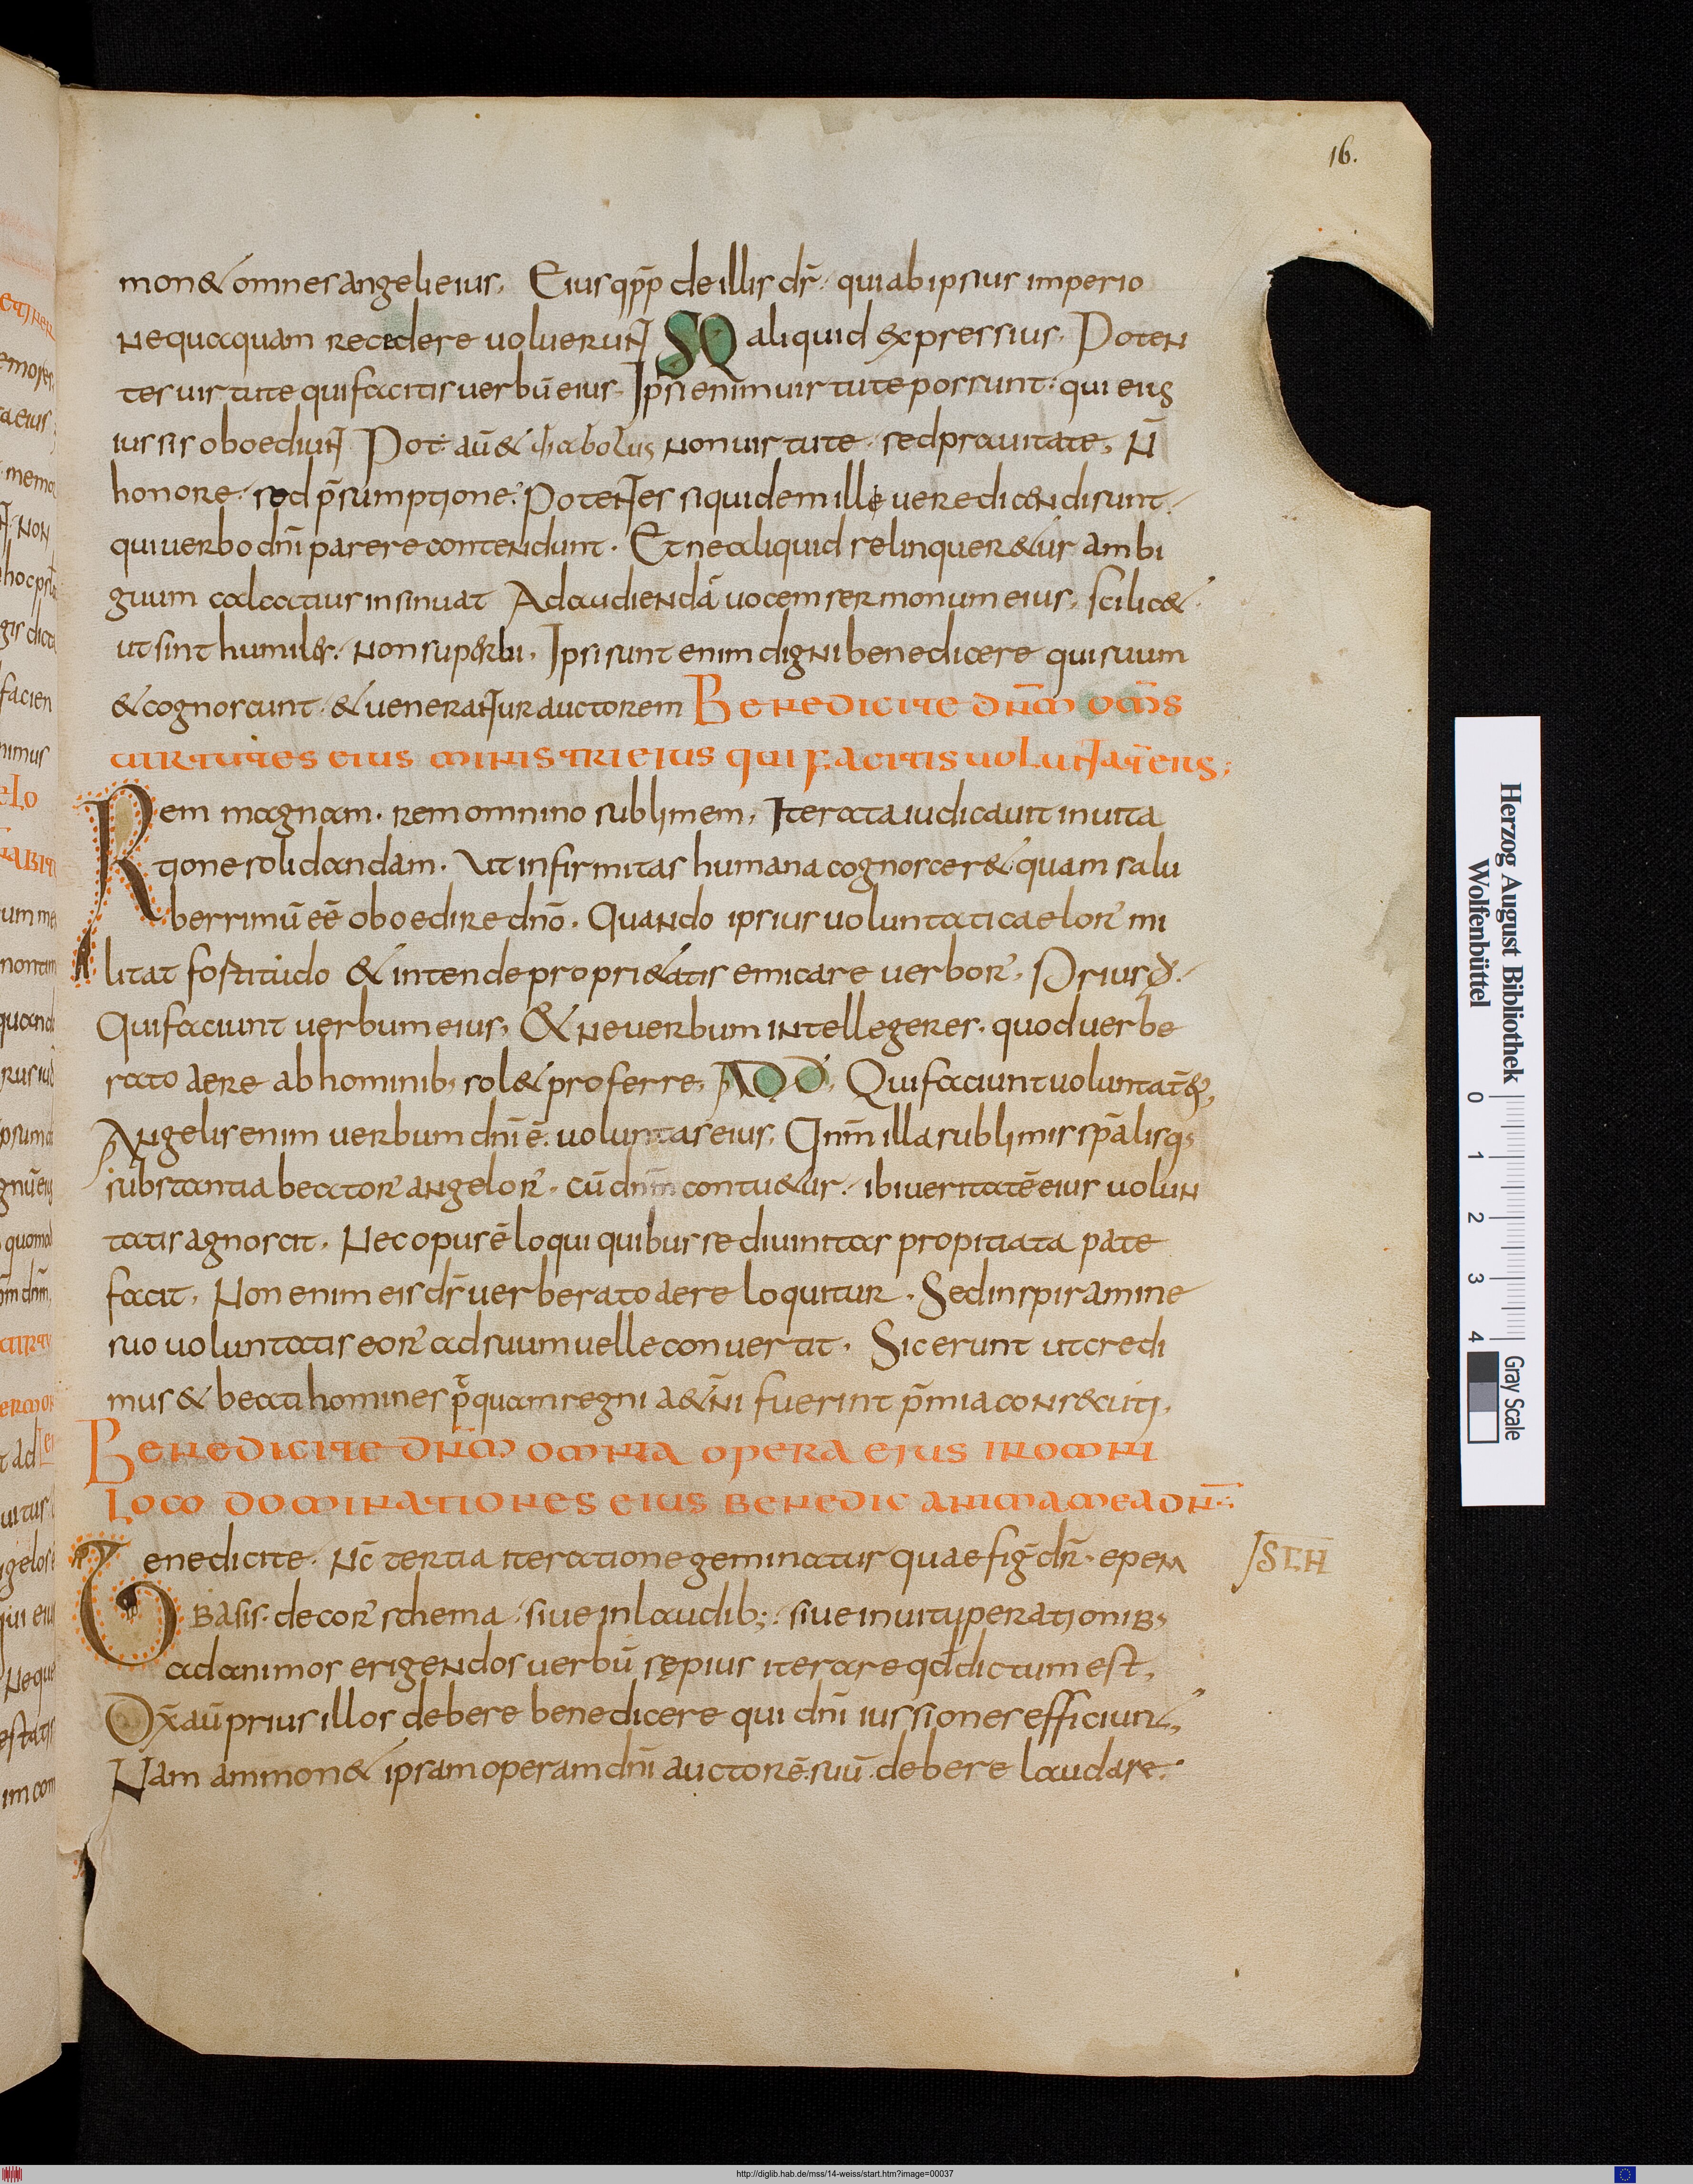 16.
mon& omnes angeli eius, Eius qpp̄ de illis dr̄, qui ab ipsius imperio
nequaquam recedere uoluerunt SQ aliquid expressius. Poten
tes uirtute qui facitis uerbū eius. Ipsi enim uirtute possunt: qui eius
iussis oboediunt. Pot: aū & diabolus non uirtute, sed prauitate, N̄
honore, sed p̄sumptione. Potentes siquidem ille uere dicendi sunt.
qui uerbo dn̄i parere contendunt. Et ne aliquid relinquer&ur ambi
guum adhuc insinuat Ad audiendā uocem sermonum eius, scilic&
ut sint humiles, non superbi, Ipsi sunt enim digni benedicere qui suum
& cognoscunt, & uenerantur auctorem Benedicite dn̄m om̄s
uirtutes eius ministri eius qui facitis uoluntatē eius;
Rem magnam. rem omnino sublimem, Iterata iudicauit inuita
tione solidandam. Ut infirmitas humana cognoscer& quam salu
berrimū eē oboedire dn̄o. Quando ipsius uoluntati caelor̄ mi
litat fortitudo & intende propri&atis emicare uerbor̄, Prius đ.
Qui faciunt uerbum eius, & ne uerbum intellegeres. quod uerbe
rato aere ab hominib; sol& proferre, ADD, Qui faciunt uoluntatē ei;
Angelis enim uerbum dn̄i ē. uoluntas eius, Qn̄m illa sublimis sp̄alisq;
substantia beator̄ angelor̄. cū dn̄m contu&ur. ibi ueritatē eius uolun
tatis agnoscit. Nec opus ē loqui quibus se diuinitas propitiata pate
facit, Non enim eis dr̄ uerberato aere loquitur. Sed inspiramine
suo uoluntatis eor̄ ad suum uelle conuertit. Sic erunt ut credi
mus & beati homines p̄quam regni a&n̄i fuerint p̄mia cons&cuti,
Benedicite dn̄m omnia opera eius in omni
loco dominationes eius benedic anima mea dn̄m
Benedicite. Nc̄ tertia iteratione geminatur quae fiḡ dr̄. epem
basis. decor̄ schema, siue in laudib;, siue in uituperationib;
ad animos erigendos uerbū sępius iterare qd̄ dictum est,
Dx̄ aū prius illos debere benedicere qui dn̄i iussiones efficiunt,
Nam ammon& ipsam operam dn̄i auctorē suū debere laudare.
ISTH
Herzog August Bibliothek
Wolfenbüttel
0 1 2 3 4
Gray Scale
http://diglib.hab.de/mss/14-weiss/start.htm?image=00037